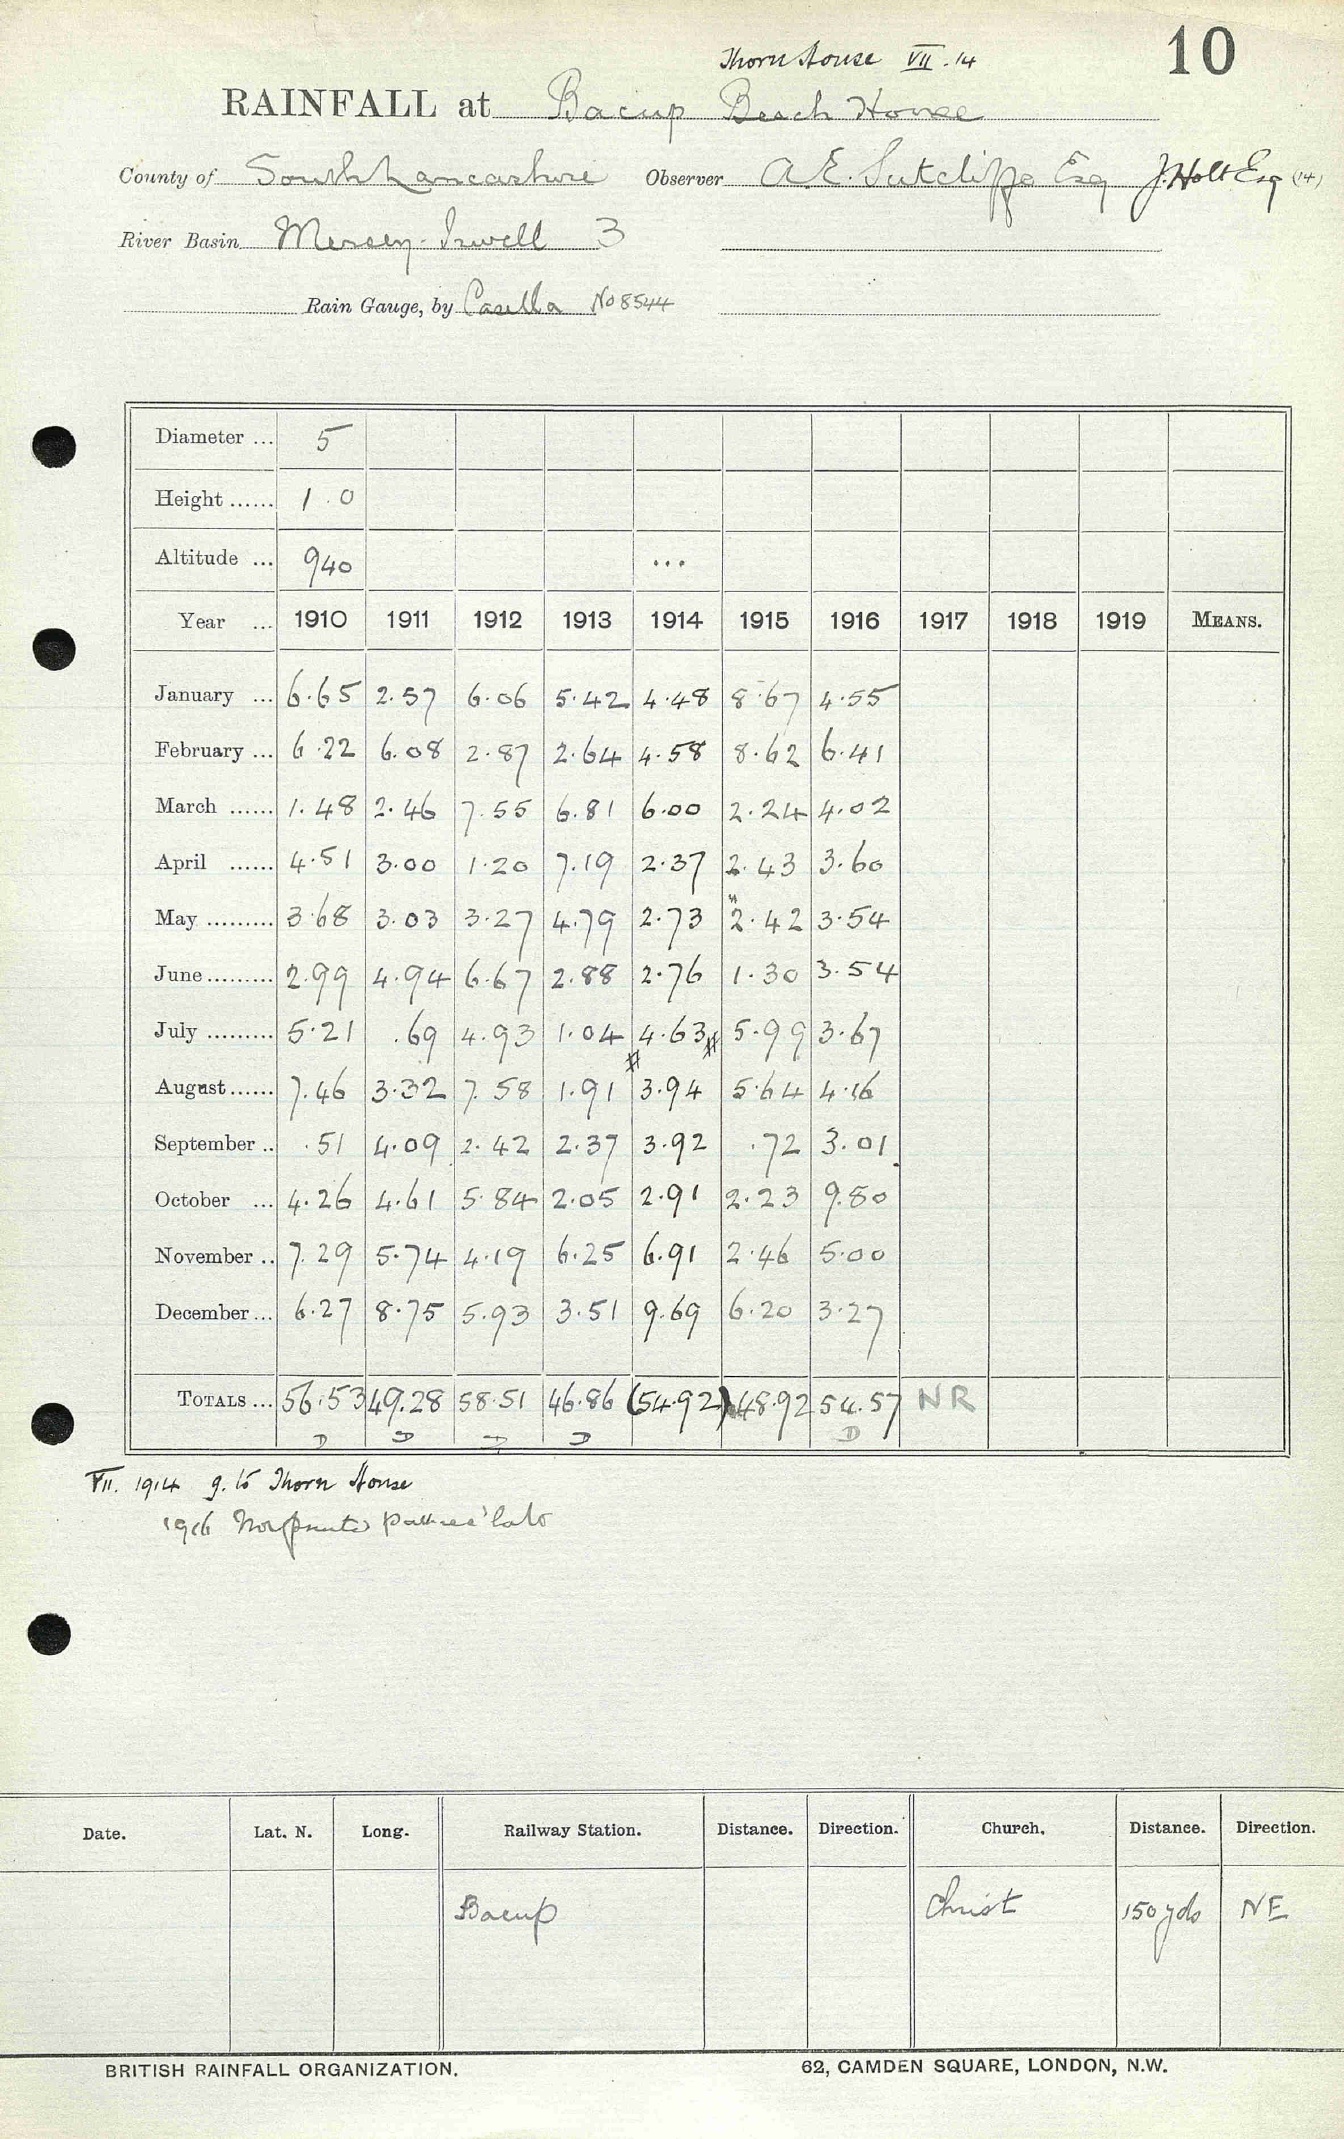 10
Thorn House VII. 14
RAINFALL at Bacup Beech House
County of South Lancashire Observer A.E. Sutcliffe Esq J. Holt Esq (14)
River Basin Mersey-Irwell 3
Rain Gauge, by Casella No 8544
Diameter ... 5
Height ...... 1.0
Altitude ... 940 ...
Year ... 1910 1911 1912 1913 1914 1915 1916 1917 1918 1919 MEANS.
January ... 6.65 2.57 6.06 5.42 4.48 8.67 4.55
February ... 6.22 6.08 2.87 2.64 4.58 8.62 6.41
March ...... 1.48 2.46 7.55 6.81 6.00 2.24 4.02
April ...... 4.51 3.00 1.20 7.19 2.37 2.43 3.60
May ......... 3.68 3.03 3.27 4.79 2.73 2.42 3.54
June ......... 2.99 4.94 6.67 2.88 2.76 1.30 3.54
July ......... 5.21 .69 4.93 1.04 4.63 # 5.99 3.67
August ...... 7.46 3.32 7.58 1.91 # 3.94 5.64 4.16
September .. .51 4.09 2.42 2.37 3.92 .72 3.01
October ... 4.26 4.61 5.84 2.05 2.91 2.23 9.80
November .. 7.29 5.74 4.19 6.25 6.91 2.46 5.00
December ... 6.27 8.75 5.93 3.51 9.69 6.20 3.27
TOTALS ... 56.53 49.28 58.51 46.86 (54.92) 48.92 54.57 NR
D D D D D
VII. 1914 g. to Thorn House
1916
Date. Lat. N. Long. Railway Station. Distance. Direction. Church. Distance. Direction.
Bacup Christ 150 yds NE
BRITISH RAINFALL ORGANIZATION. 62, CAMDEN SQUARE, LONDON, N.W.